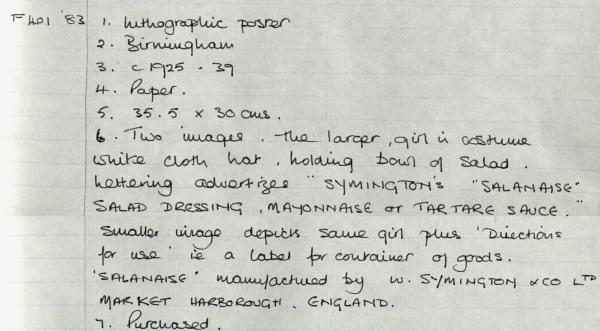 F401 '83 1. Lithographic poster
2. Birmingham
3. c 1925 - 39
4. Paper.
5. 35.5 x 30 cms.
6. Two images. The larger, girl in costume
white cloth hat, holding bowl of salad.
Lettering advertizes "SYMINGTON'S "SALANAISE"
SALAD DRESSING, MAYONNAISE or TARTARE SAUCE."
Smaller image depicts same girl plus 'Directions
for use' ie a label for container of goods.
'SALANAISE' manufactured by W. SYMINGTON & CO LTD
MARKET HARBOROUGH. ENGLAND.
7. Purchased.